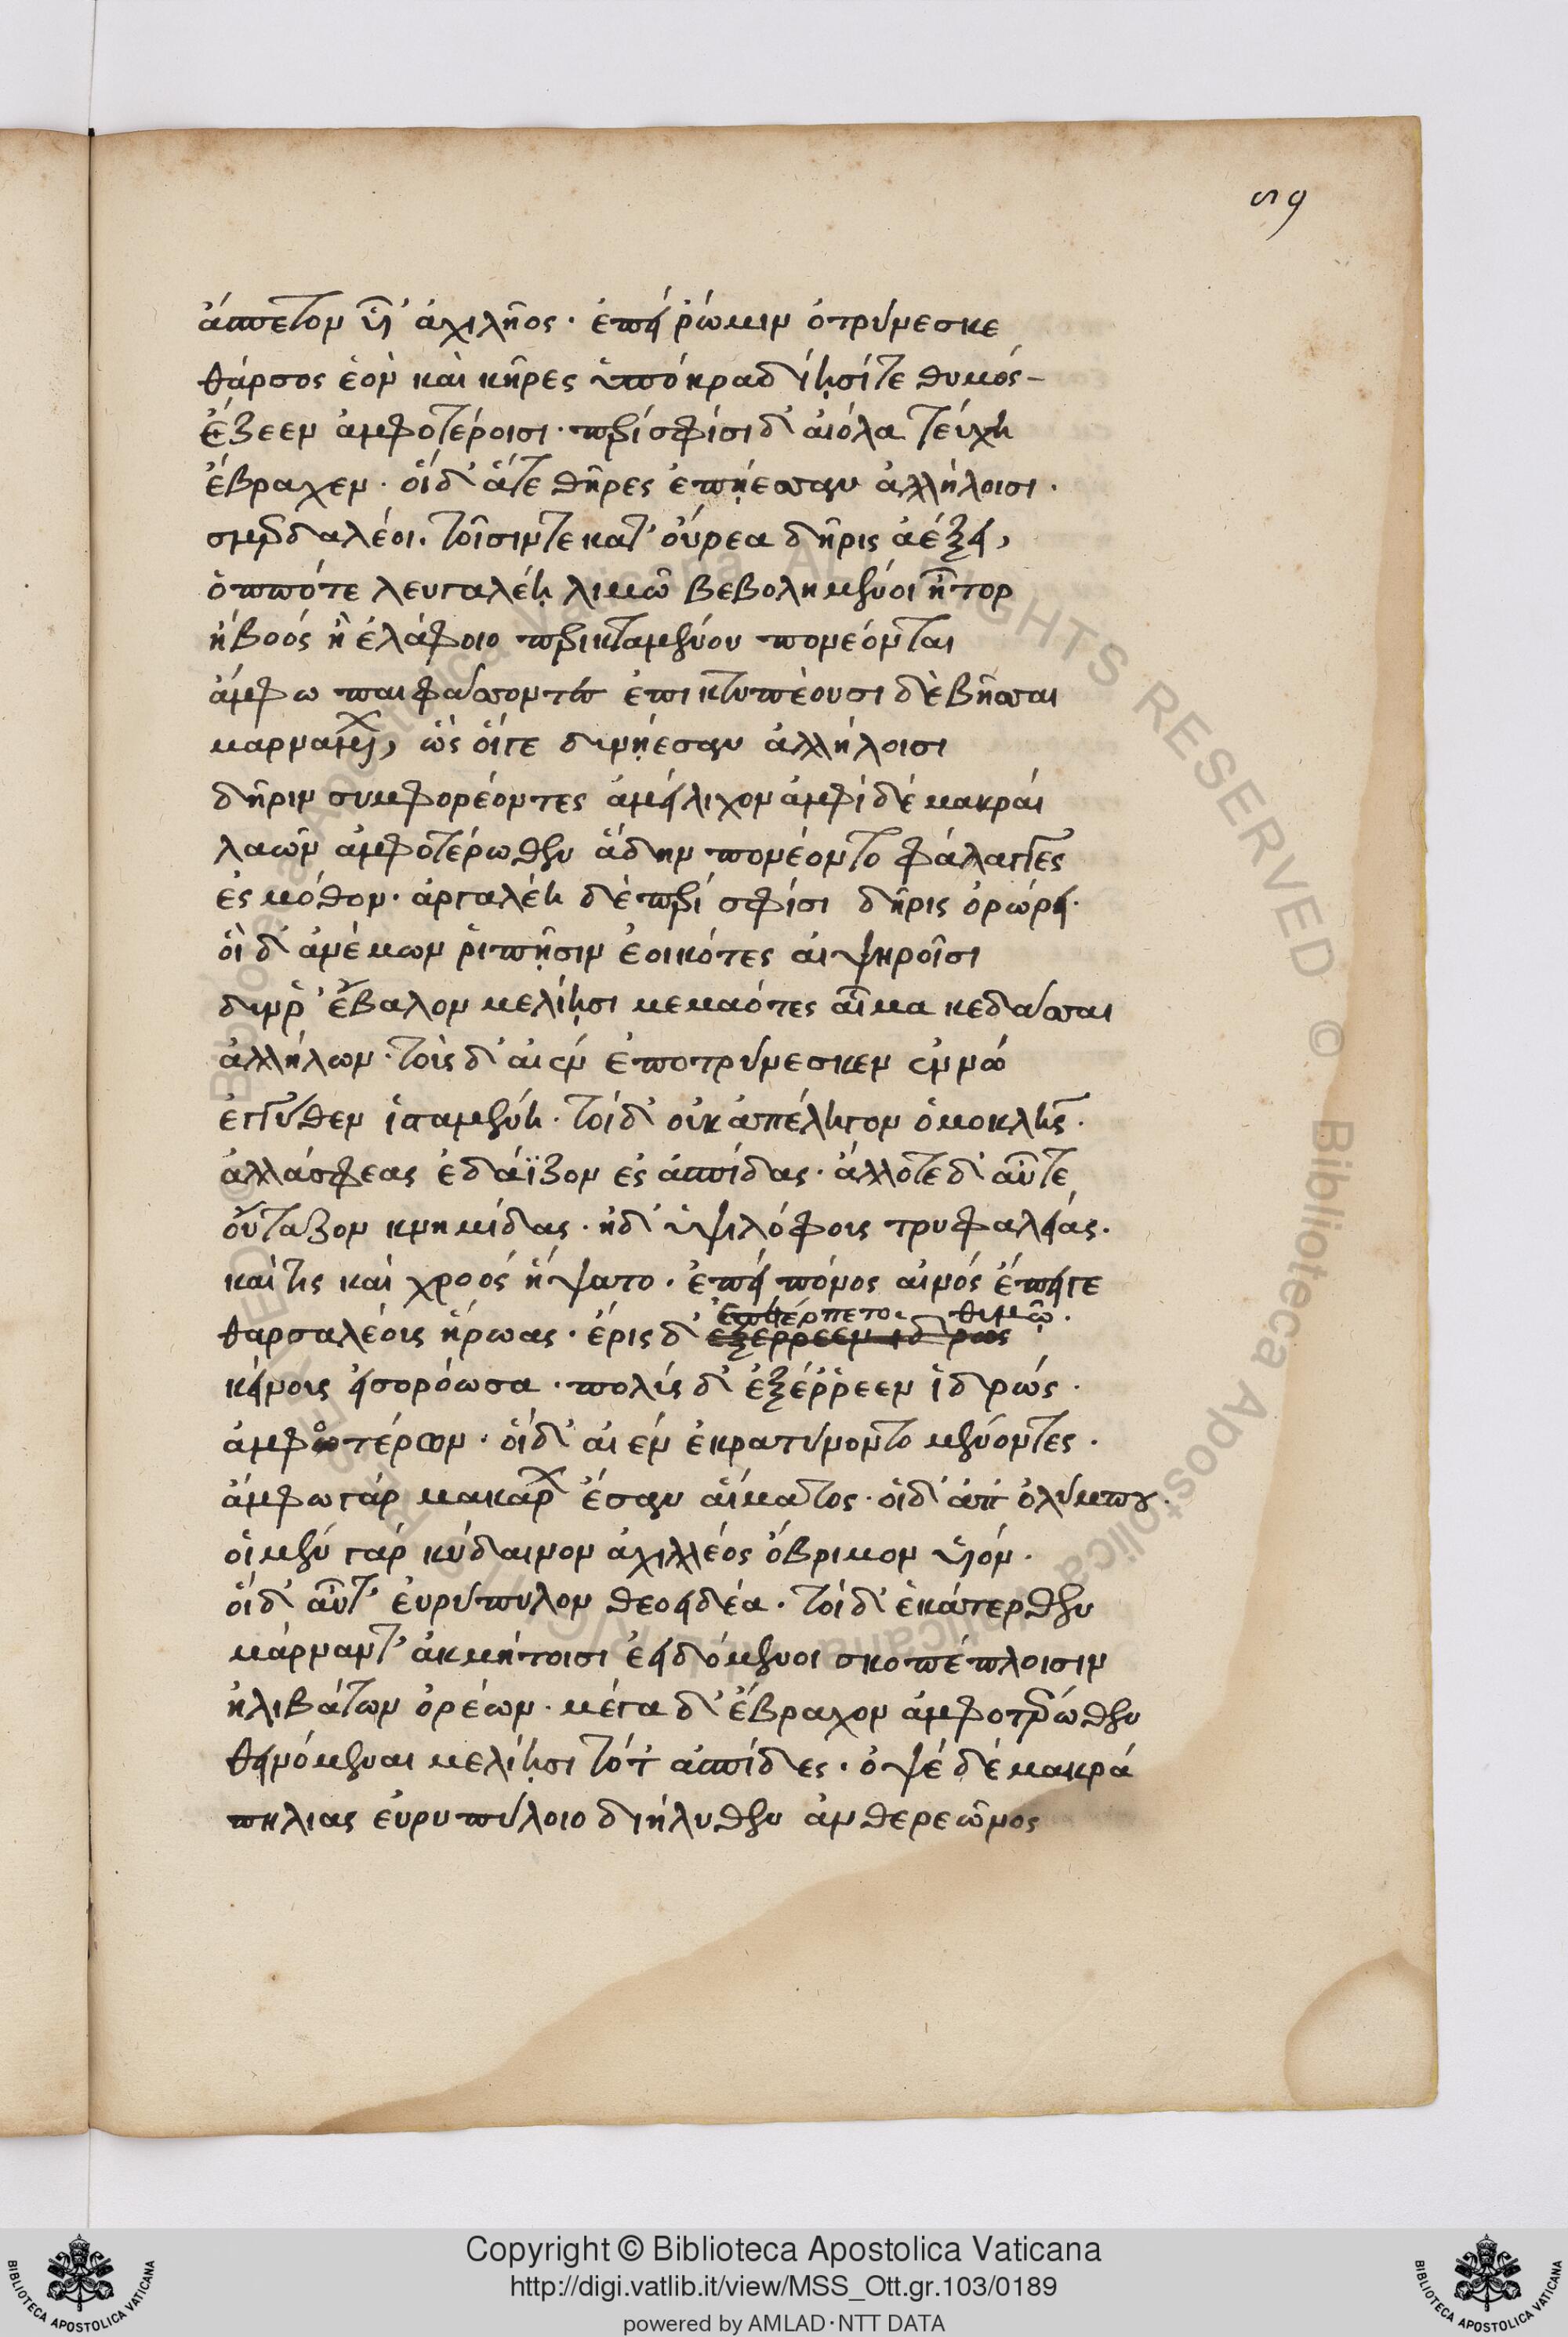 ϛ9
ἄσπετον υἷ' ἀχιλῆος· ἐπεί ῥώμιν ὀτρύνεσκε
θάρσος ἑὸν καὶ κῆρες ὑπό κραδίῃσί τε θυμός-
ἔζεεν ἀμφοτέροισι· περί σφίσι δ' αἰόλα τεύχη
ἔβραχεν· οἵ δ' ἅτε θῆρες ἐπῄεσαν ἀλλήλοισι·
σμερδαλέοι. τοῖσίν τε κατ' οὔρεα δῆρις ἀέξει,
ὁππότε λευγαλέῃ λιμῶ βεβολημένοι ἦτορ
ἢ βοός ἢ ἐλάφοιο περὶ κταμένου πονέονται
ἄμφω παιφάσσοντες ἐπικτυπέουσι δὲ βῆσσαι
μαρναμένων, ὣς οἵγε συνῄεσαν ἀλλήλοισι
δῆριν συμφορέοντες ἀμείλιχον ἀμφὶ δέ μακραί
λαῶν ἀμφοτέρωθεν ἄδην πονέοντο φάλαγγες
ἐς μόθον· ἀργαλέη δὲ περί σφίσι δῆρις ὀρώρει·
οἱ δ' ἀνέμων ῥιπῇσιν ἐοικότες αἰψηροῖσι
σύν ῥ' ἔβαλον μελίῃσι μεμαότες αἷμα κεδάσσαι
ἀλλήλων· τοὶς δ' αἰὲν ἐποτρύνεσκεν ἐννώ
ἐγγύθεν ἱσταμένη· τοί δ' οὐκ ἀπέληγον ὁμοκλῆς·
ἀλλά σφεας ἐδάϊζον ἐς ἀσπίδας· ἄλλοτε δ' αὖτε
οὔταζον κνημίδας· ἠδ' ὑψιλόφοις τρυφαλείας·
καί τις καὶ χροός ἥψατο· ἐπεί πόνος αἰνός ἔπειγε
ἐπετέρπετο θυμῷ·
θαρσαλέοις ἥρωας· ἔρις δ' ἐξέρρεεν ἱδρώς
κείνοις εἰσορόωσα· πολίς δ' ἐξέρῥεεν ἱδρώς·
ἀμφοτέρων· οἵ δ' αἰεν ἐκρατύνοντο μένοντες·
ἄμφω γάρ μακάρων ἔσαν αἵματος· οἱ δ' ἀπ' ὀλύμπου·
οἱ μέν γάρ κύδαινον ἀχιλλέος ὄβριμον υἱόν·
οἵ δ' αὖτ' εὐρύπυλον θεοειδέα· τοί δ' ἑκάτερθεν
μάρναντ' ἀκμήτοισι ἐειδόμενοι σκοπέπλοισιν
ἠλιβάτων ὀρέων· μέγα δ' ἔβραχον ἀμφοτέρωθεν
θεινόμεναι μελίῃσι τότ' ἀσπίδες· ὀψέ δέ μακρά
πηλιας εὐρυπύλοιο διήλυθεν ἀνθερεῶνος
Copyright © Biblioteca Apostolica Vaticana
http://digi.vatlib.it/view/MSS_Ott.gr.103/0189
powered by AMLAD·NTT DATA